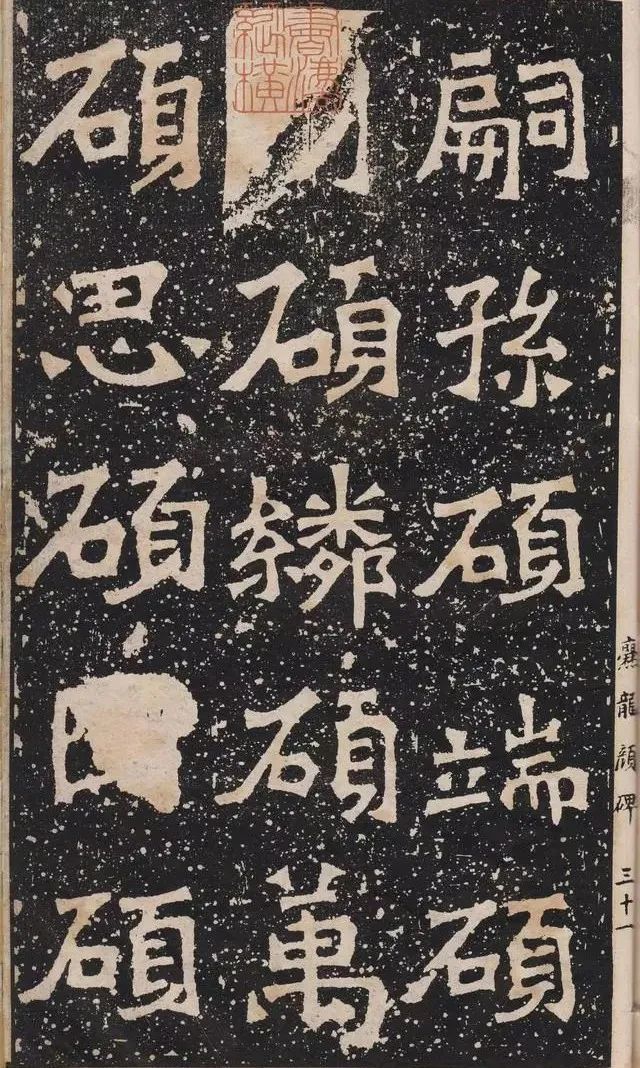 嗣孫碩端碩
碩䋱碩萬
碩思碩碩
爨龍顏碑 三十一